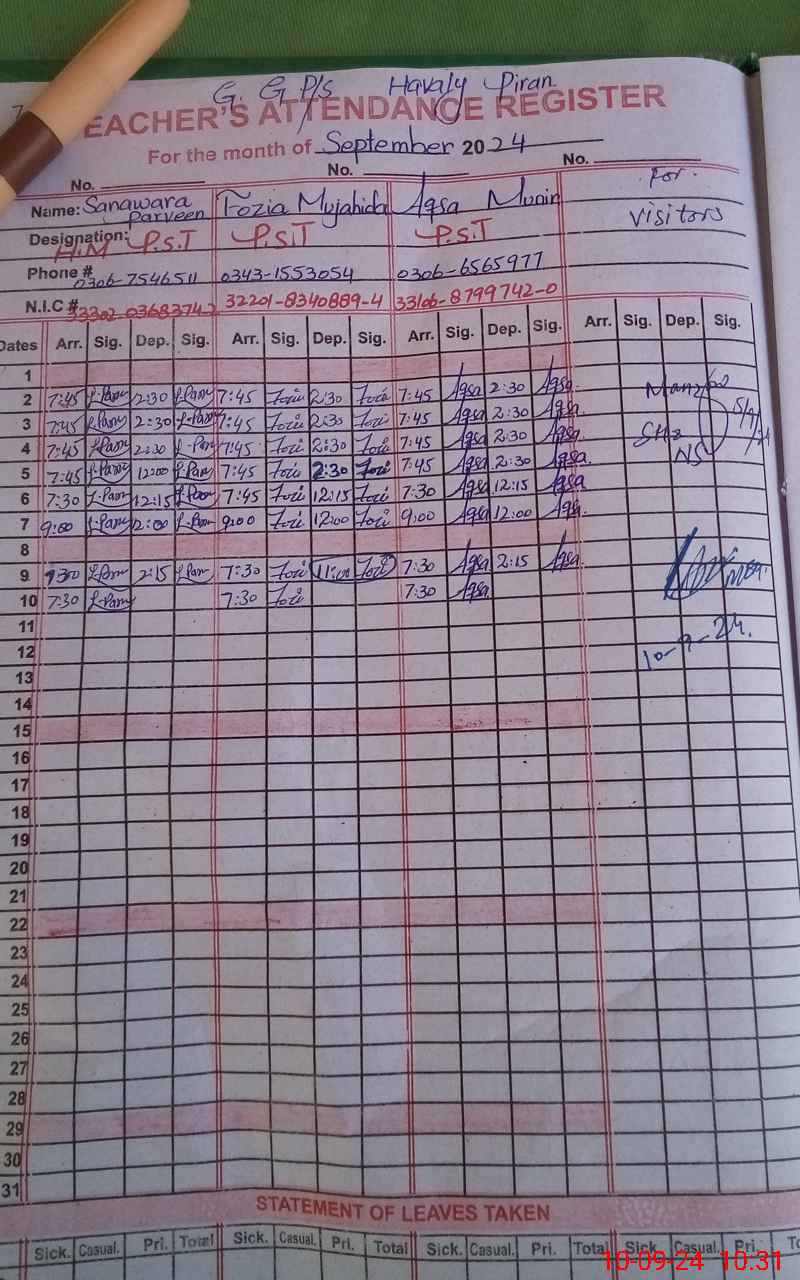 G. G P/s Havaly Piran
TEACHER'S ATTENDANCE REGISTER
For the month of September 2024
No. No. No.
Name: Sanawara Parveen Fozia Mujahida Aqsa Munir For
Designation: H.M P.S.T P.S.T P.S.T visitors
Phone # 0306-7546511 0343-1553054 0306-6565977
N.I.C # 32201-8340889-4 33106-8799742-0
Dates Arr. Sig. Dep. Sig. Arr. Sig. Dep. Sig. Arr. Sig. Dep. Sig. Arr. Sig. Dep. Sig.
1
2 7:45 2:30 7:45 2:30 7:45 Aqsa 2:30 Aqsa
3 7:45 2:30 7:45 2:30 7:45 Aqsa 2:30 Aqsa
4 7:45 2:30 7:45 2:30 7:45 Aqsa 2:30 Aqsa
5 7:45 12:00 7:45 2:30 7:45 Aqsa 2:30 Aqsa
6 7:30 12:15 7:45 12:15 7:30 Aqsa 12:15 Aqsa
7 9:00 12:00 9:00 12:00 9:00 Aqsa 12:00 Aqsa
8
9 2:15 7:30 11:00 7:30 Aqsa 2:15 Aqsa
10 7:30 7:30 7:30 Aqsa
11
12 10-9-24.
13
14
15
16
17
18
19
20
21
22
23
24
25
26
27
28
29
30
31
STATEMENT OF LEAVES TAKEN
Sick. Casual. Pri. Total Sick. Casual. Pri. Total Sick. Casual. Pri. Total Sick. Casual. Pri.
10-09-24 10:31